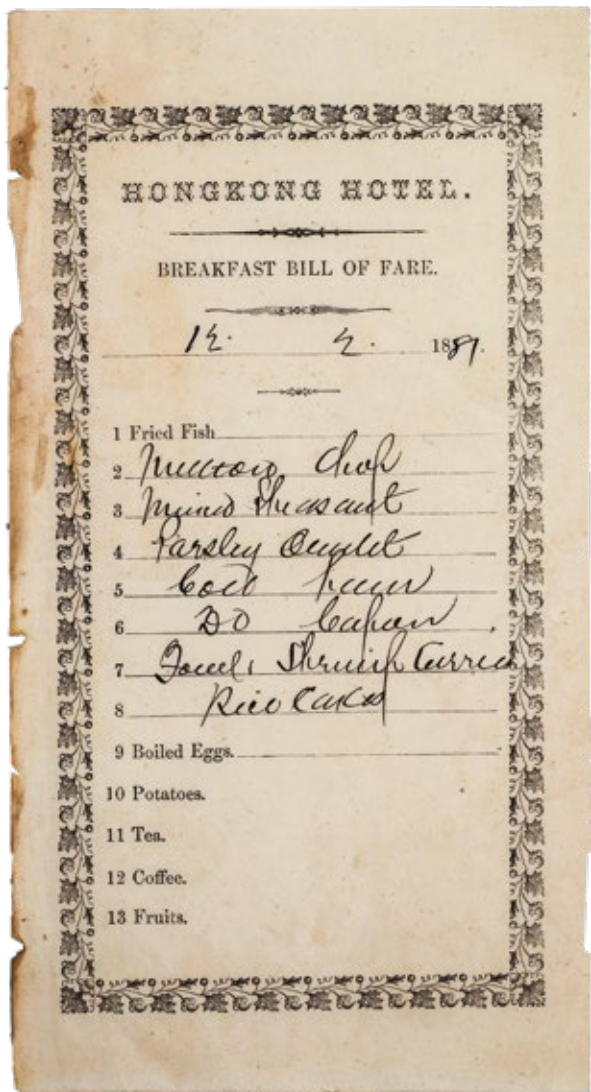 HONGKONG HOTEL.
BREAKFAST BILL OF FARE.
12. 2. 1881.
1 Fried Fish
2 Mutton Chop
3 Minced Pheasant
4 Parsley Omelet
5 Cold Ham
6 DO Capon
7 Fowl & Shrimp Curries
8 Rice Cakes
9 Boiled Eggs.
10 Potatoes.
11 Tea.
12 Coffee.
13 Fruits.